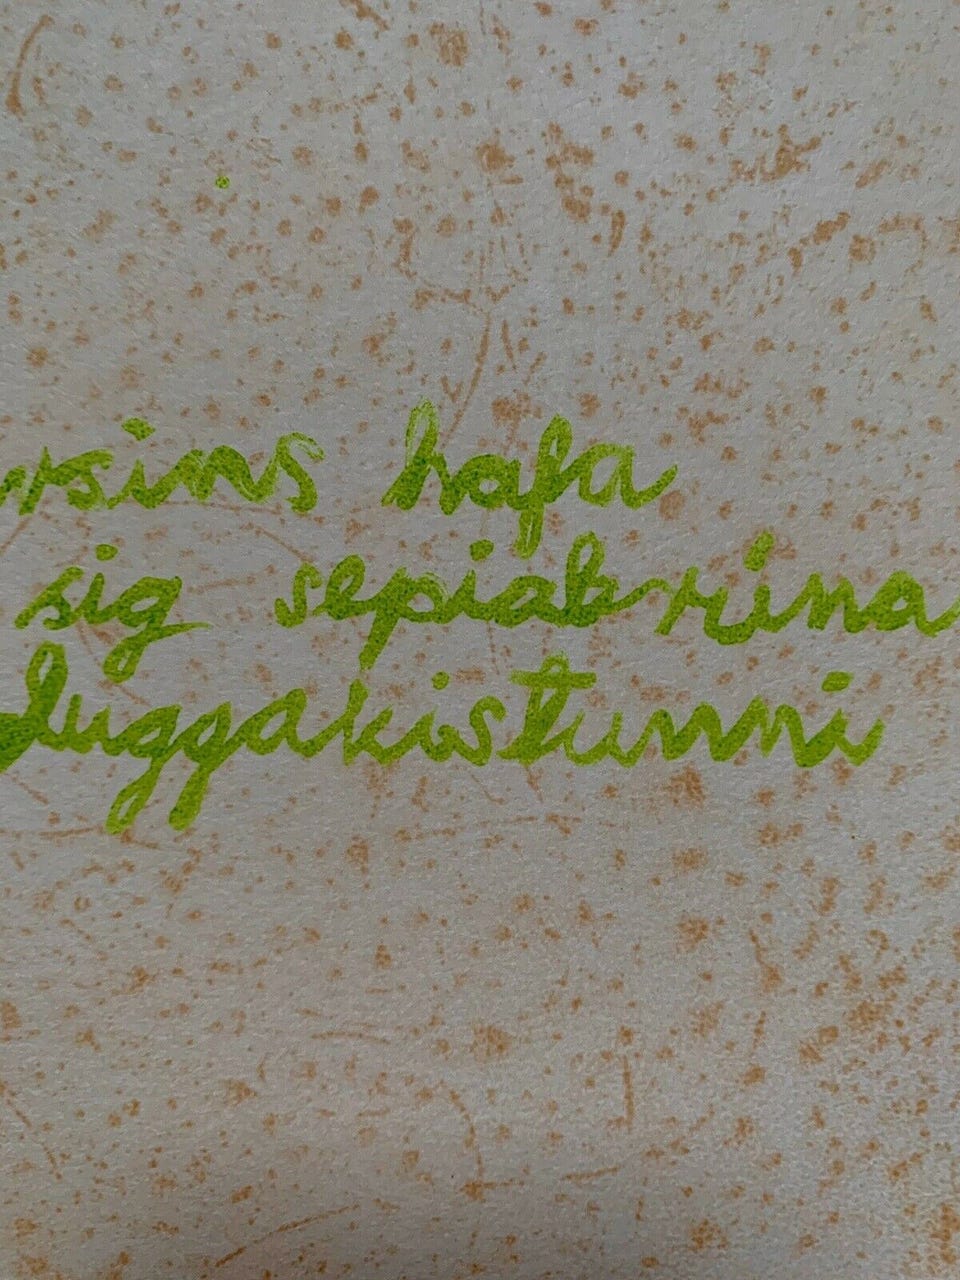 rsins hafa
sig sepiabrúna
luggakistunni